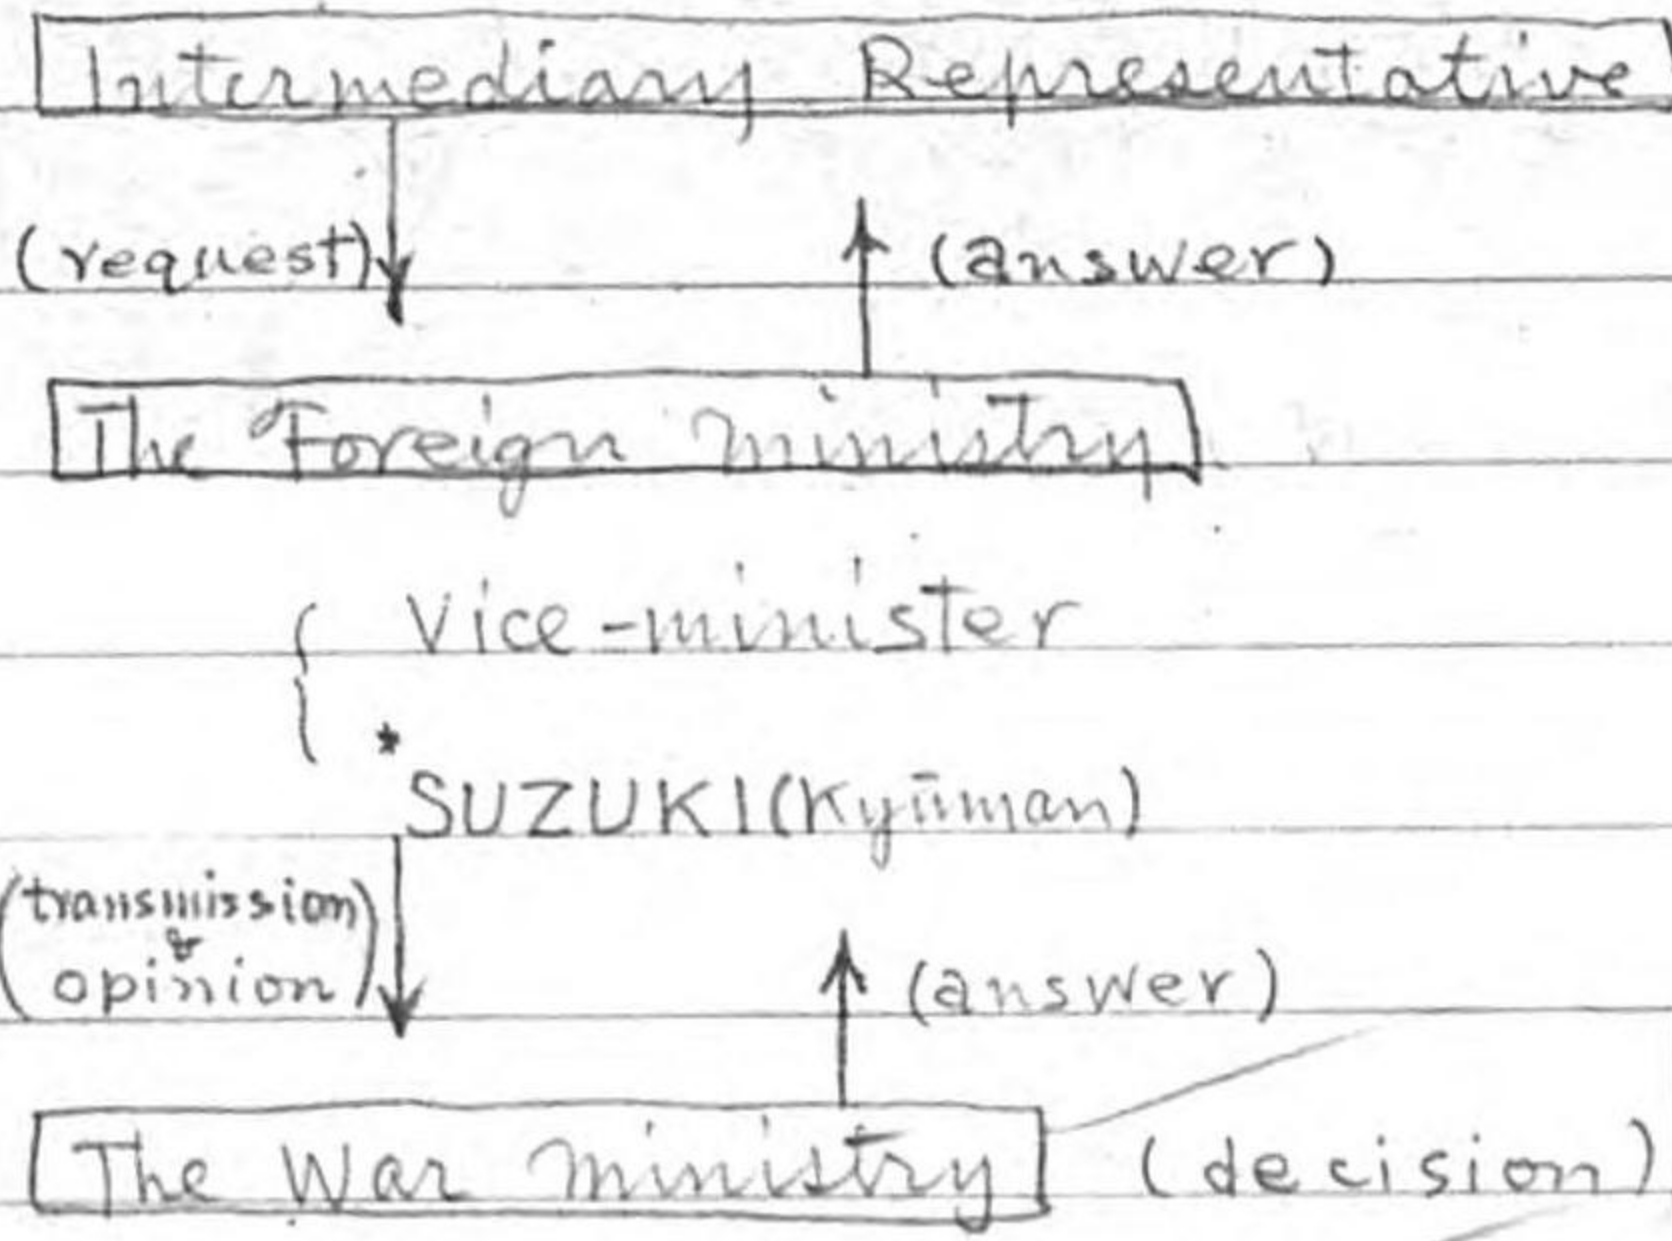 Intermediary Representative
(request) (answer)
The Foreign ministry
Vice-minister
*
SUZUKI (Kyūman)
(transmission
&
opinion) (answer)
The War ministry (decision)